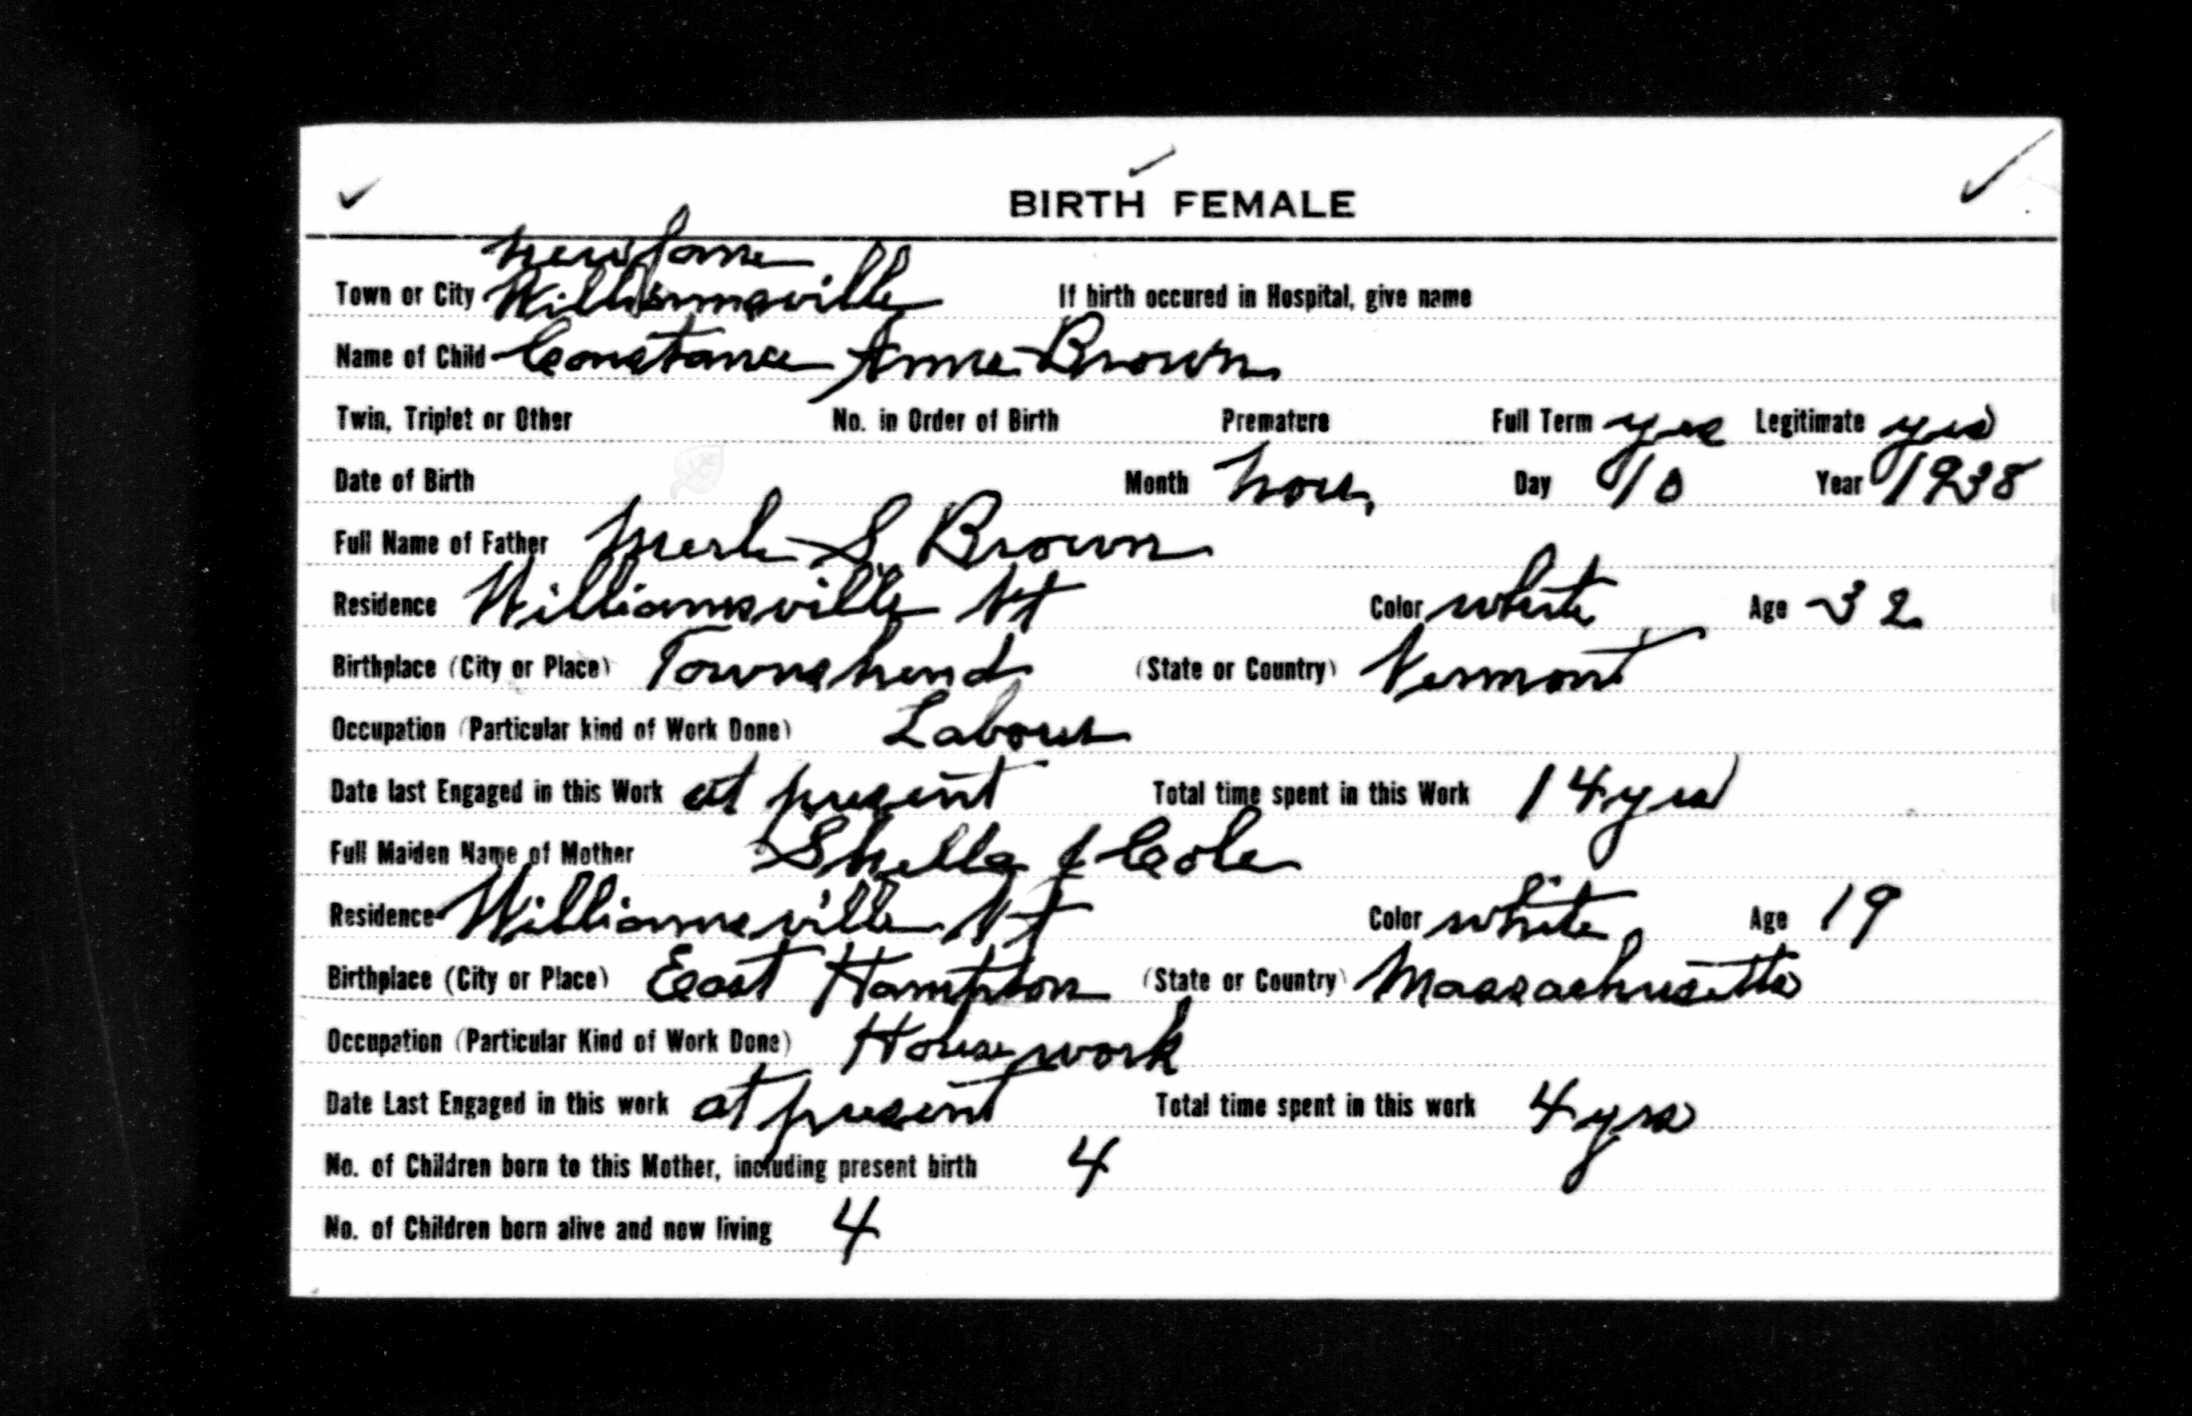 BIRTH FEMALE
Newfane
Town or City Williamsville If birth occured in Hospital, give name
Name of Child Constance Anne Brown
Twin, Triplet or Other No. in Order of Birth Premature Full Term yes Legitimate yes
Date of Birth Month Nov, Day 10 Year 1938
Full Name of Father Merle S. Brown
Residence Williamsville Vt Color white Age 32
Birthplace (City or Place) Townshend (State or Country) Vermont
Occupation (Particular kind of Work Done) Laborer
Date last Engaged in this Work at present Total time spent in this Work 14 yrs
Full Maiden Name of Mother Cole
Residence Williamsville Vt Color white Age 19
Birthplace (City or Place) East Hampton (State or Country) Massachusetts
Occupation (Particular Kind of Work Done) Housework
Date Last Engaged in this work at present Total time spent in this work 4 yrs
No. of Children born to this Mother, including present birth 4
No. of Children born alive and now living 4